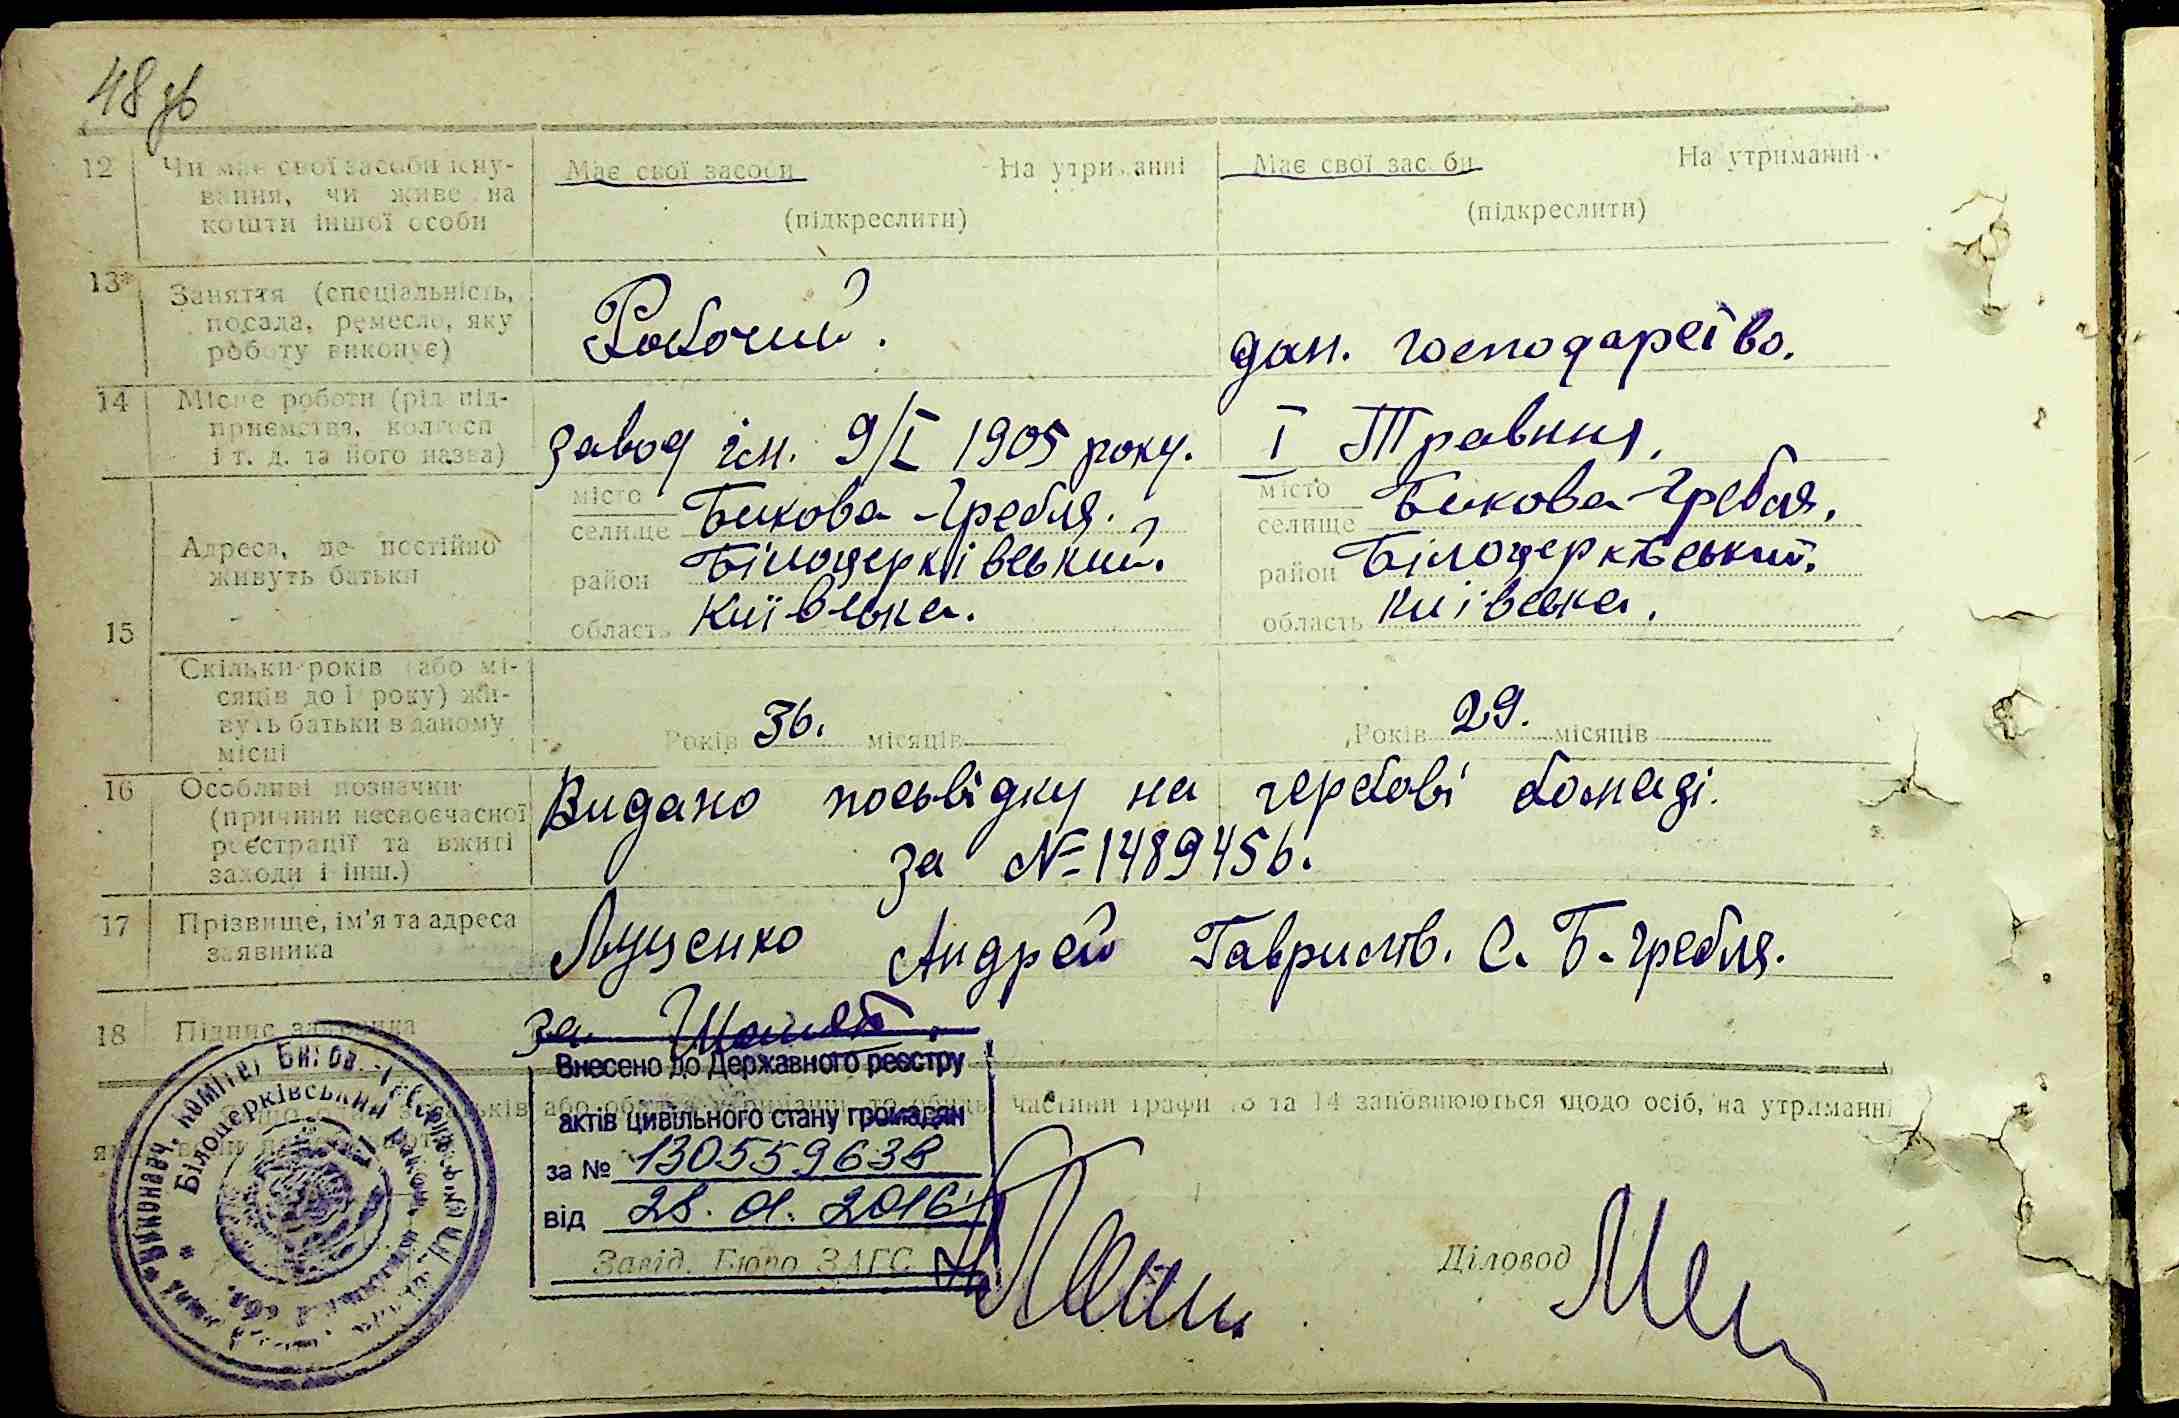 48
12 Чи має свої засоби існування, чи живе на кошти іншої особи
Має свої засоби На утриманні
(підкреслити)
Має свої засоби На утриманні
(підкреслити)
13* Заняття (спеціальність,
посада, ремесло, яку
роботу виконує)
Робочий.
дом. господарство.
14 Місце роботи (рід під-
приємства, колгосп
і т. д. та його назва)
завод ім. 9/I 1905 року.
I Травння.
15 Адреса, де постійно
живуть батьки
місто
селище Бикова-Гребля.
район Білоцерківський.
область Київська.
місто
селище Бикова-Гребля.
район Білоцерківський.
область Київська.
Скільки років (або мі-
сяців до 1 року) жи-
вуть батьки в даному
місці
Років 36. місяців
Років 29. місяців
16 Особливі позначки
(причини несвоєчасної
реєстрації та вжиті
заходи і інш.)
Видано посьвідку на гербові бомазі.
за № 1489456.
17 Прізвище, ім'я та адреса
заявника
Луценко Андрей Гаврилов. С. Б-Гребля.
18 Підпис заявника
за
Внесено до Державного реєстру
актів цивільного стану громадян
за № 130559638
від 28. 01. 2016
частини графи 13 та 14 заповнюються щодо осіб, на утриманні
Завід. Бюро ЗАГС
Діловод
Білоцерківський район